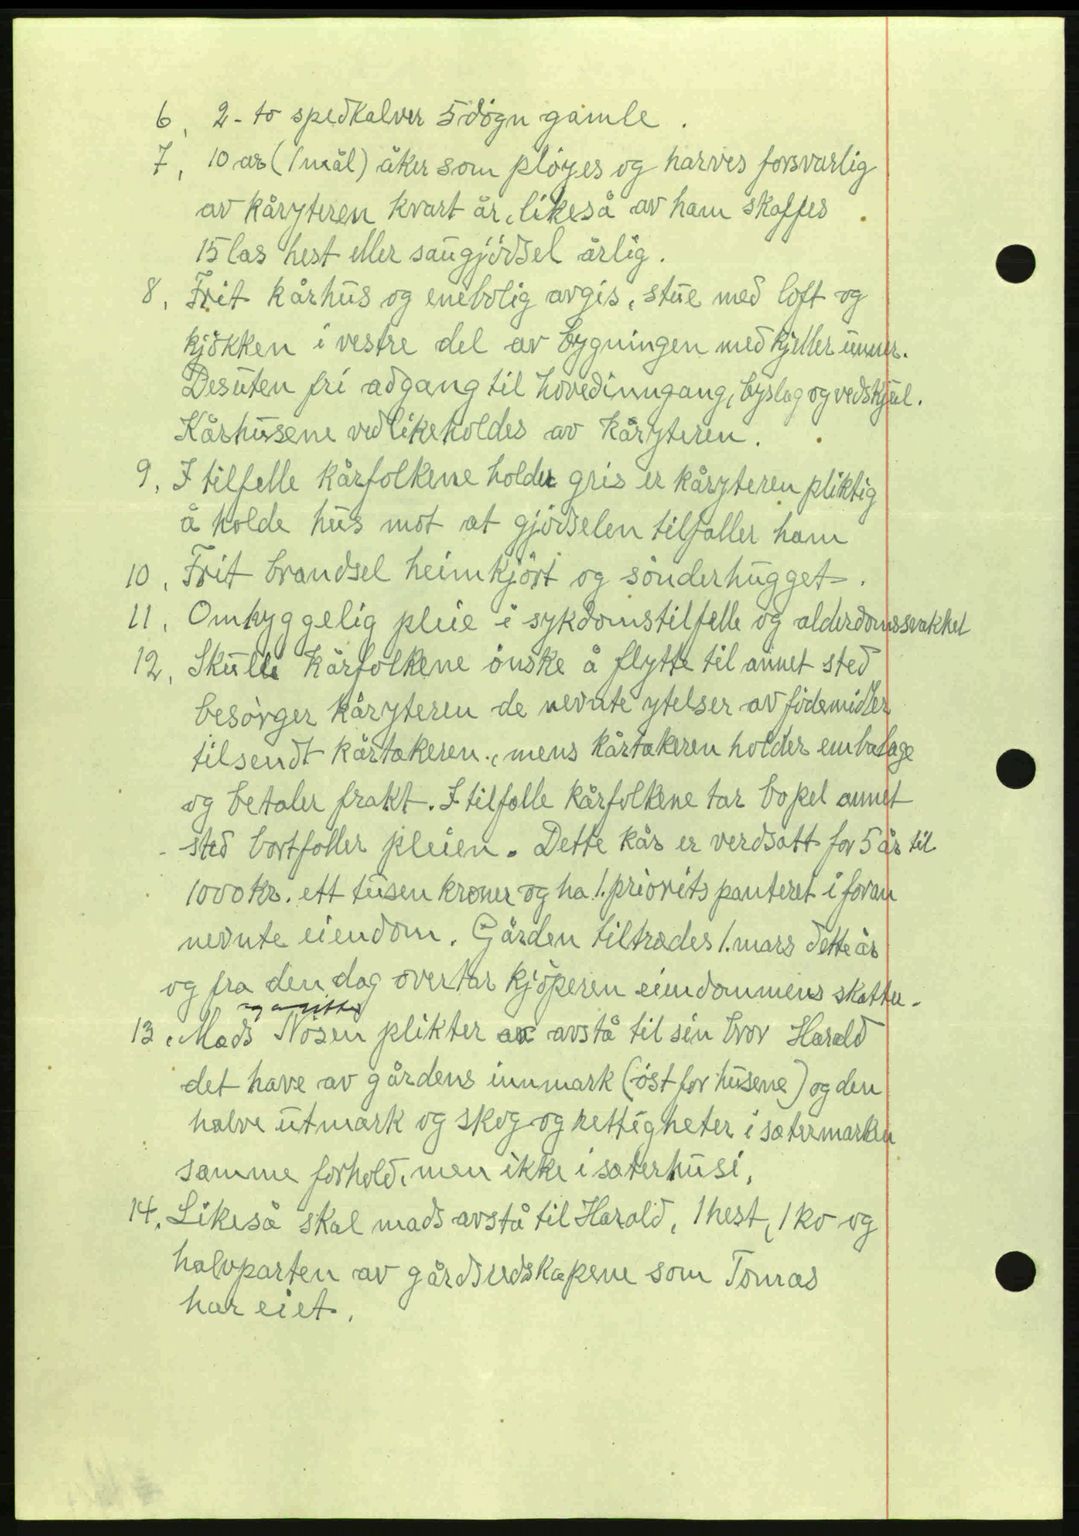 6, 2 - to spedkalver 5 døgn gamle .
7, 10 ar (1 mål) åker som pløyes og harves forsvarlig
av kåryteren kvart år, likeså av ham skaffes
15 las hest eller saugjødsel årlig.
8, Frit kårhus og enebolig avgis, stue med loft og
kjøkken i vestre del av bygningen med kjeller unner.
Desuten fri adgang til hovedinngang, byslag og vedskjul.
Kårhusene vedlikeholdes av kåryteren.
9, I tilfelle kårfolkene holder gris er kåryteren pliktig
å holde hus mot at gjødselen tilfaller ham
10, Frit brandsel heimkjørt og sønderhugget.
11, Omhyggelig pleie i sykdomstilfelle og alderdomssvakhet
12, Skulle kårfolkene ønske å flytte til annet sted
besørger kåryteren de nevnte ytelser av fødemidler
tilsendt kårtakeren, mens kårtakeren holder embalage
og betaler frakt. I tilfalle kårfolkene tar bopel annet
sted bortfaller pleien. Dette kår er verdsatt for 5 år til
1000 kr. ett tusen kroner og ha 1. priorits panteret i foran
nevnte eiendom. Gården tiltrædes 1. mars dette år
og fra den dag overtar kjøperen eiendommens skatter.
13, Mads Nosen plikter avstå til sin bror Harald
det have av gårdens innmark (øst for husene) og den
halve utmark og skog og rettigheter i sætermarken
samme forhold, men ikke i sæterhusi,
14, Likeså skal mads avstå til Harald, 1 hest, 1 ko og
halvparten av gårdsredskapene som Tomas
har eiet,